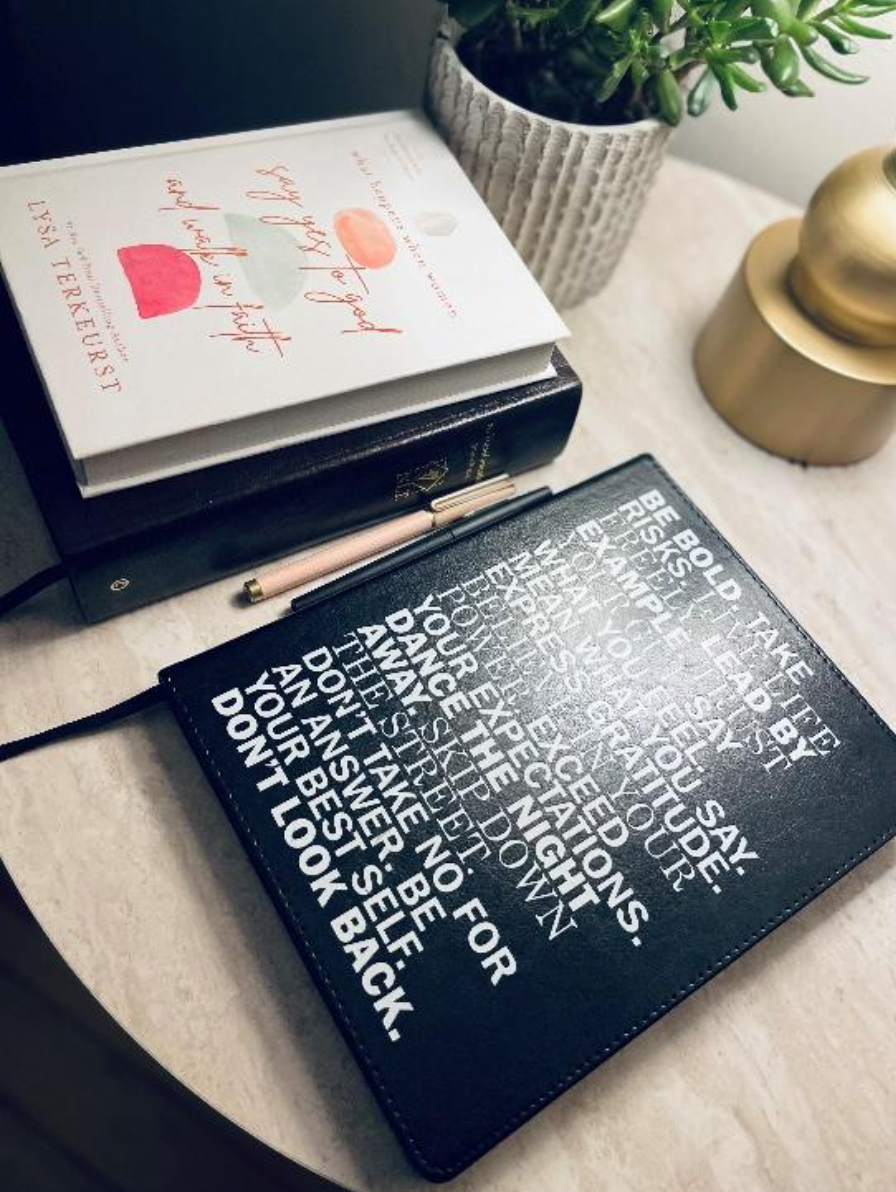 what happens when women
say yes to god
and walk in faith
Bestselling Author
LYSA TERKEURST
BE BOLD. TAKE
RISKS. LIVE LIFE
FREELY. TRUST
YOUR LEAD BY
EXAMPLE. SAY
WHAT YOU FEEL.
MEAN WHAT YOU SAY.
EXPRESS GRATITUDE.
BELIEVE IN YOUR
POWER. EXCEED
YOUR EXPECTATIONS.
DANCE THE NIGHT
AWAY. SKIP DOWN
THE STREET.
DON'T TAKE NO FOR
AN ANSWER. BE
YOUR BEST SELF.
DON'T LOOK BACK.